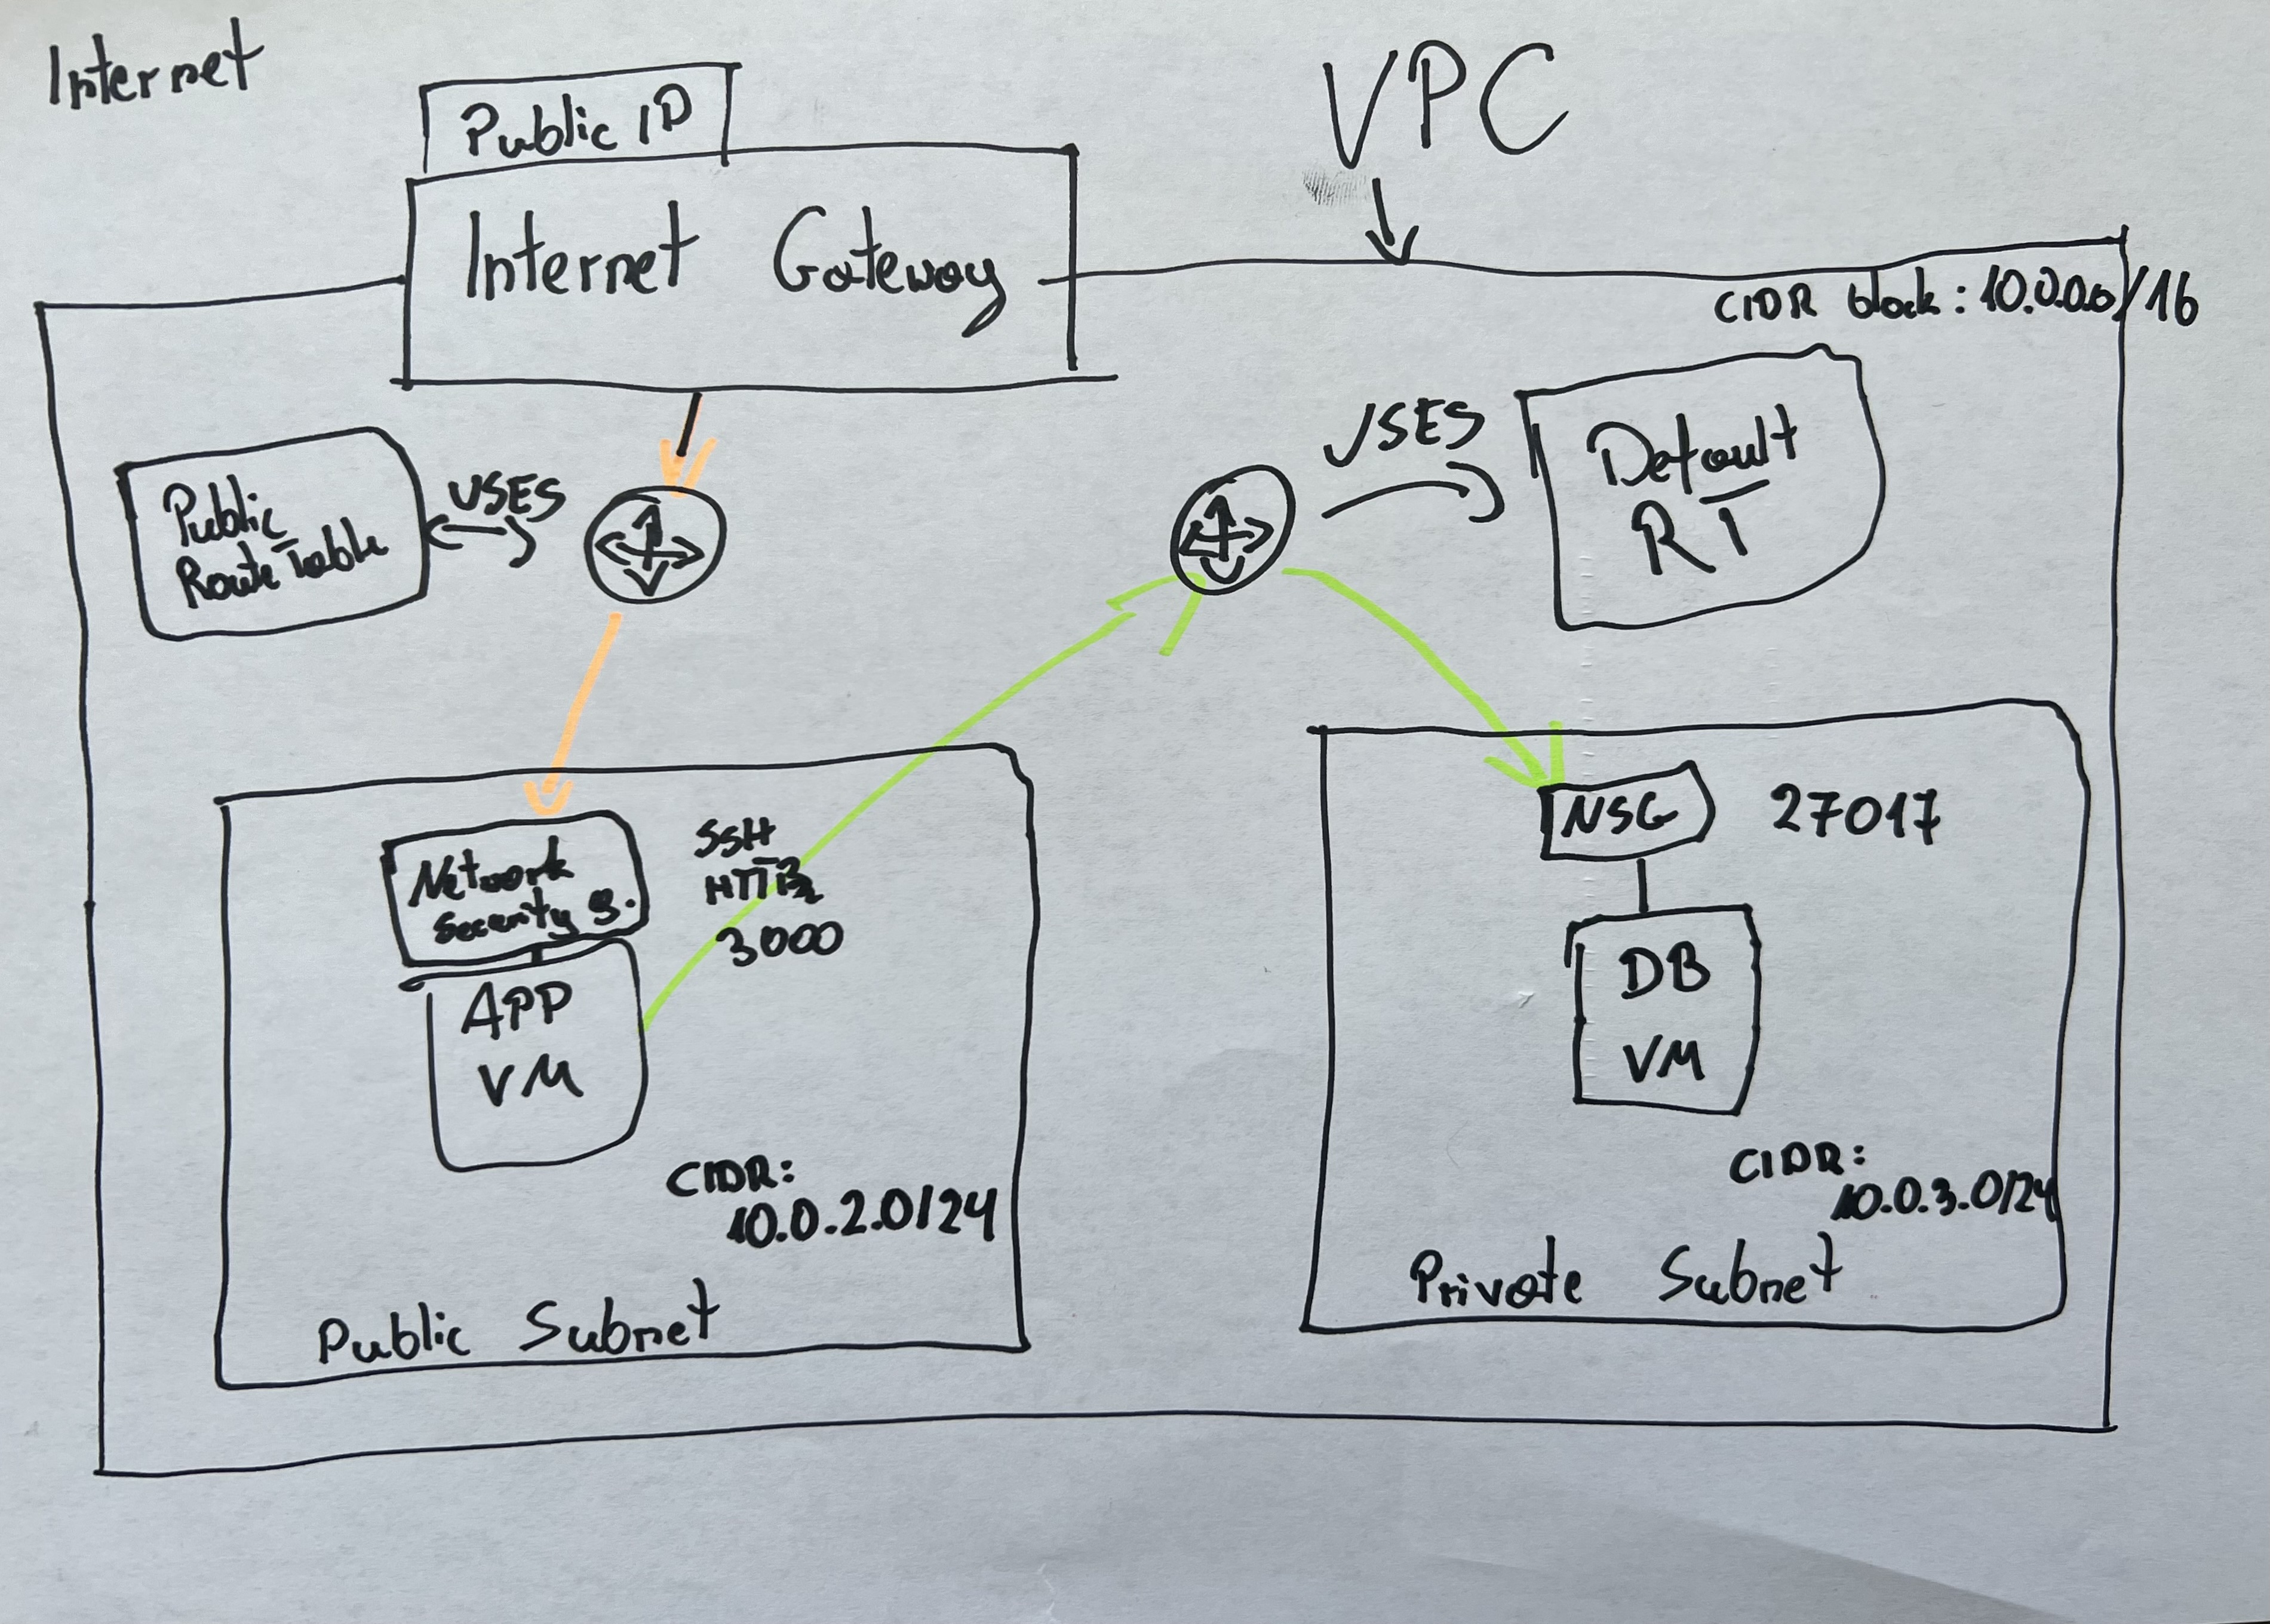 Internet
Public IP
VPC
Internet Gateway
CIDR block: 10.0.0.0/16
Public
Route Table
USES
USES
Default
RT
Network
Security g.
SSH
HTTP
3000
APP
VM
CIDR:
10.0.2.0/24
Public Subnet
NSG
27017
DB
VM
CIDR:
10.0.3.0/24
Private Subnet